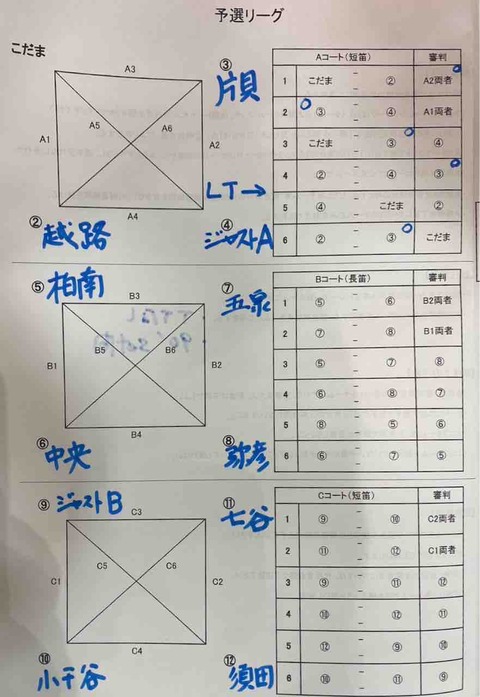 予選リーグ
こだま
③
片貝
A3
A1
A5
A6
A2
A4
LT→
②
越路
④
ジャストA
Aコート(短笛) 審判
1 こだま - ② A2両者
2 ③ - ④ A1両者
3 こだま - ③ ④
4 ② - ④ ③
5 ④ - こだま ②
6 ② - ③ こだま
⑤
柏南
⑦
五泉
B3
B1
B5
B6
B2
B4
⑥
中央
⑧
弥彦
Bコート(長笛) 審判
1 ⑤ - ⑥ B2両者
2 ⑦ - ⑧ B1両者
3 ⑤ - ⑦ ⑧
4 ⑥ - ⑧ ⑦
5 ⑧ - ⑤ ⑥
6 ⑥ - ⑦ ⑤
⑨
ジャストB
⑪
七谷
C3
C1
C5
C6
C2
C4
⑩
小千谷
⑫
須田
Cコート(短笛) 審判
1 ⑨ - ⑩ C2両者
2 ⑪ - ⑫ C1両者
3 ⑨ - ⑪ ⑫
4 ⑩ - ⑫ ⑪
5 ⑫ - ⑨ ⑩
6 ⑩ - ⑪ ⑨